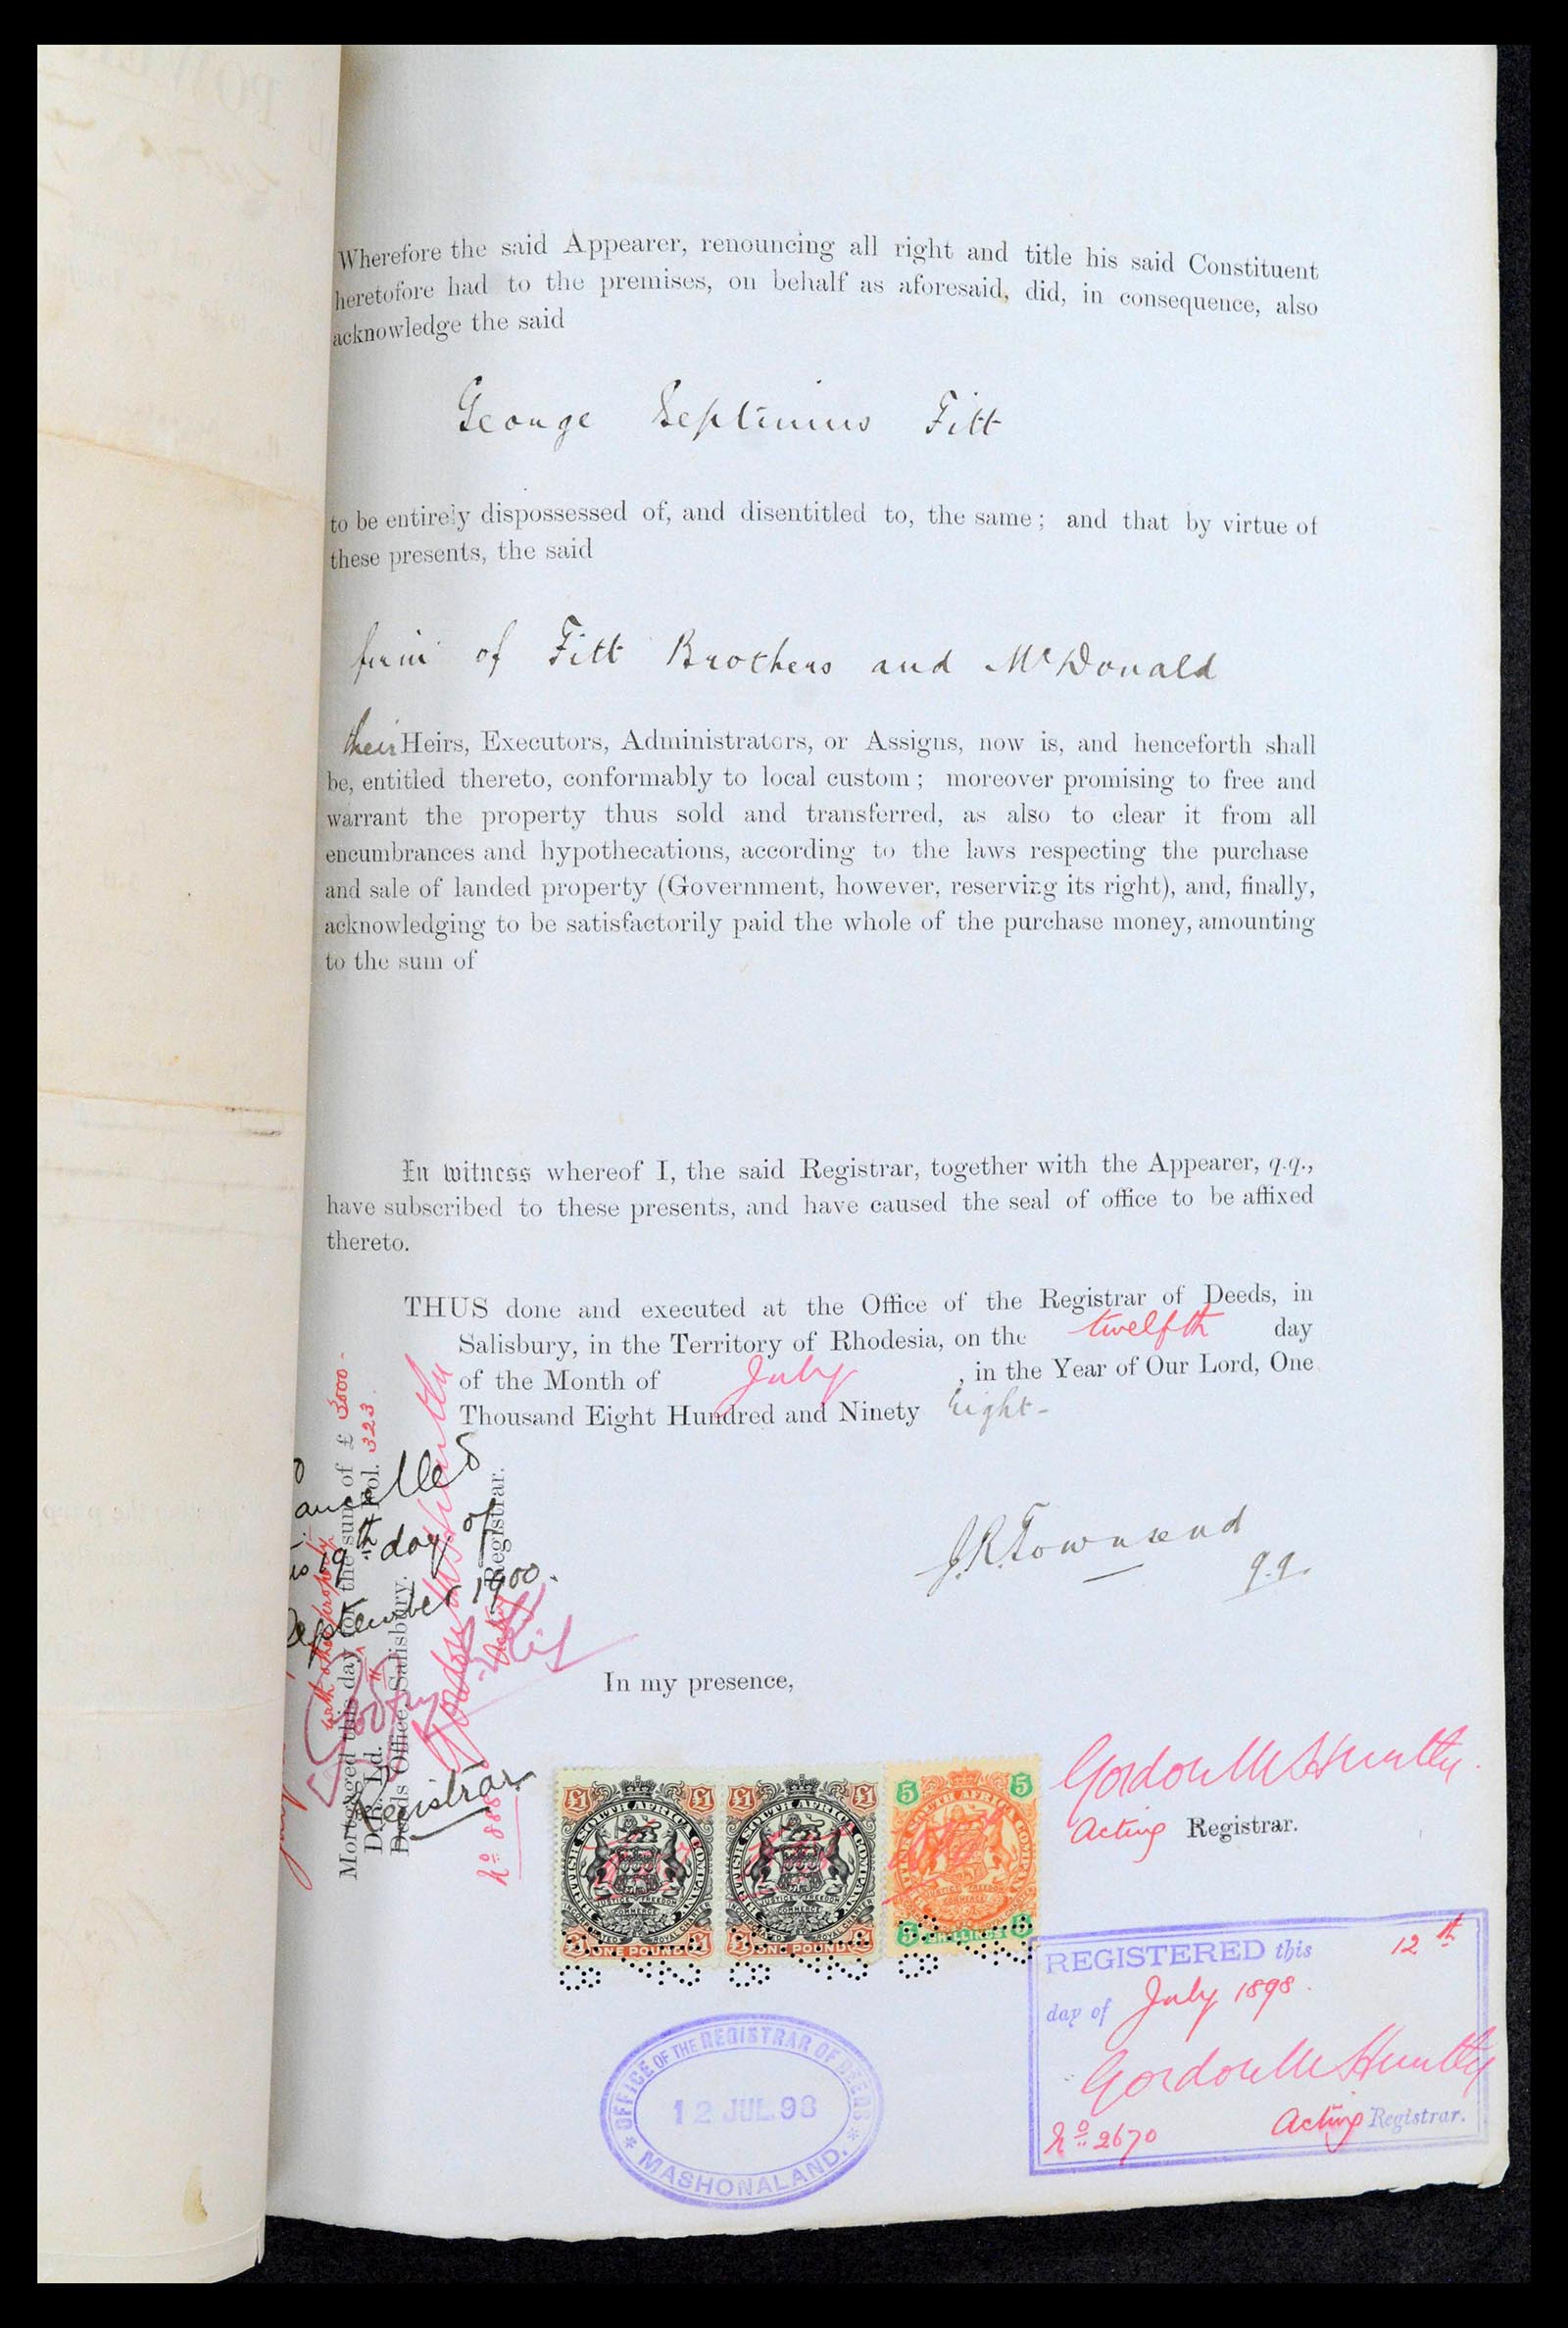 Wherefore the said Appearer, renouncing all right and title his said Constituent
heretofore had to the premises, on behalf as aforesaid, did, in consequence, also
acknowledge the said
George Septimus Fitt
to be entirely dispossessed of, and disentitled to, the same; and that by virtue of
these presents, the said
firm of Fitt Brothers and McDonald
their Heirs, Executors, Administrators, or Assigns, now is, and henceforth shall
be, entitled thereto, conformably to local custom; moreover promising to free and
warrant the property thus sold and transferred, as also to clear it from all
encumbrances and hypothecations, according to the laws respecting the purchase
and sale of landed property (Government, however, reserving its right), and, finally,
acknowledging to be satisfactorily paid the whole of the purchase money, amounting
to the sum of
In witness whereof I, the said Registrar, together with the Appearer, q.q.,
have subscribed to these presents, and have caused the seal of office to be affixed
thereto.
THUS done and executed at the Office of the Registrar of Deeds, in
Salisbury, in the Territory of Rhodesia, on the twelfth day
of the Month of July, in the Year of Our Lord, One
Thousand Eight Hundred and Ninety Eight-
J.R. Townsend
q.q.
In my presence,
Gordon
Acting Registrar.
Mortgaged this day for the sum of £ 3000-
with other property
Fol. 323.
Deeds Office, Salisbury.
Acting Registrar.
ancelled
19th day of
September 1900.
Registrar
No 888
£1 £1
BRITISH SOUTH AFRICA COMPANY
JUSTICE FREEDOM
COMMERCE
INCORPORATED BY ROYAL CHARTER
ONE POUND
£1 £1
BRITISH SOUTH AFRICA COMPANY
JUSTICE FREEDOM
COMMERCE
INCORPORATED BY ROYAL CHARTER
ONE POUND
5 5
BRITISH SOUTH AFRICA COMPANY
JUSTICE FREEDOM
COMMERCE
5 SHILLINGS 5
REGISTERED this 12th
day of July 1898.
Gordon
No 2670 Acting Registrar.
OFFICE OF THE REGISTRAR OF DEEDS
12 JUL.98
MASHONALAND.